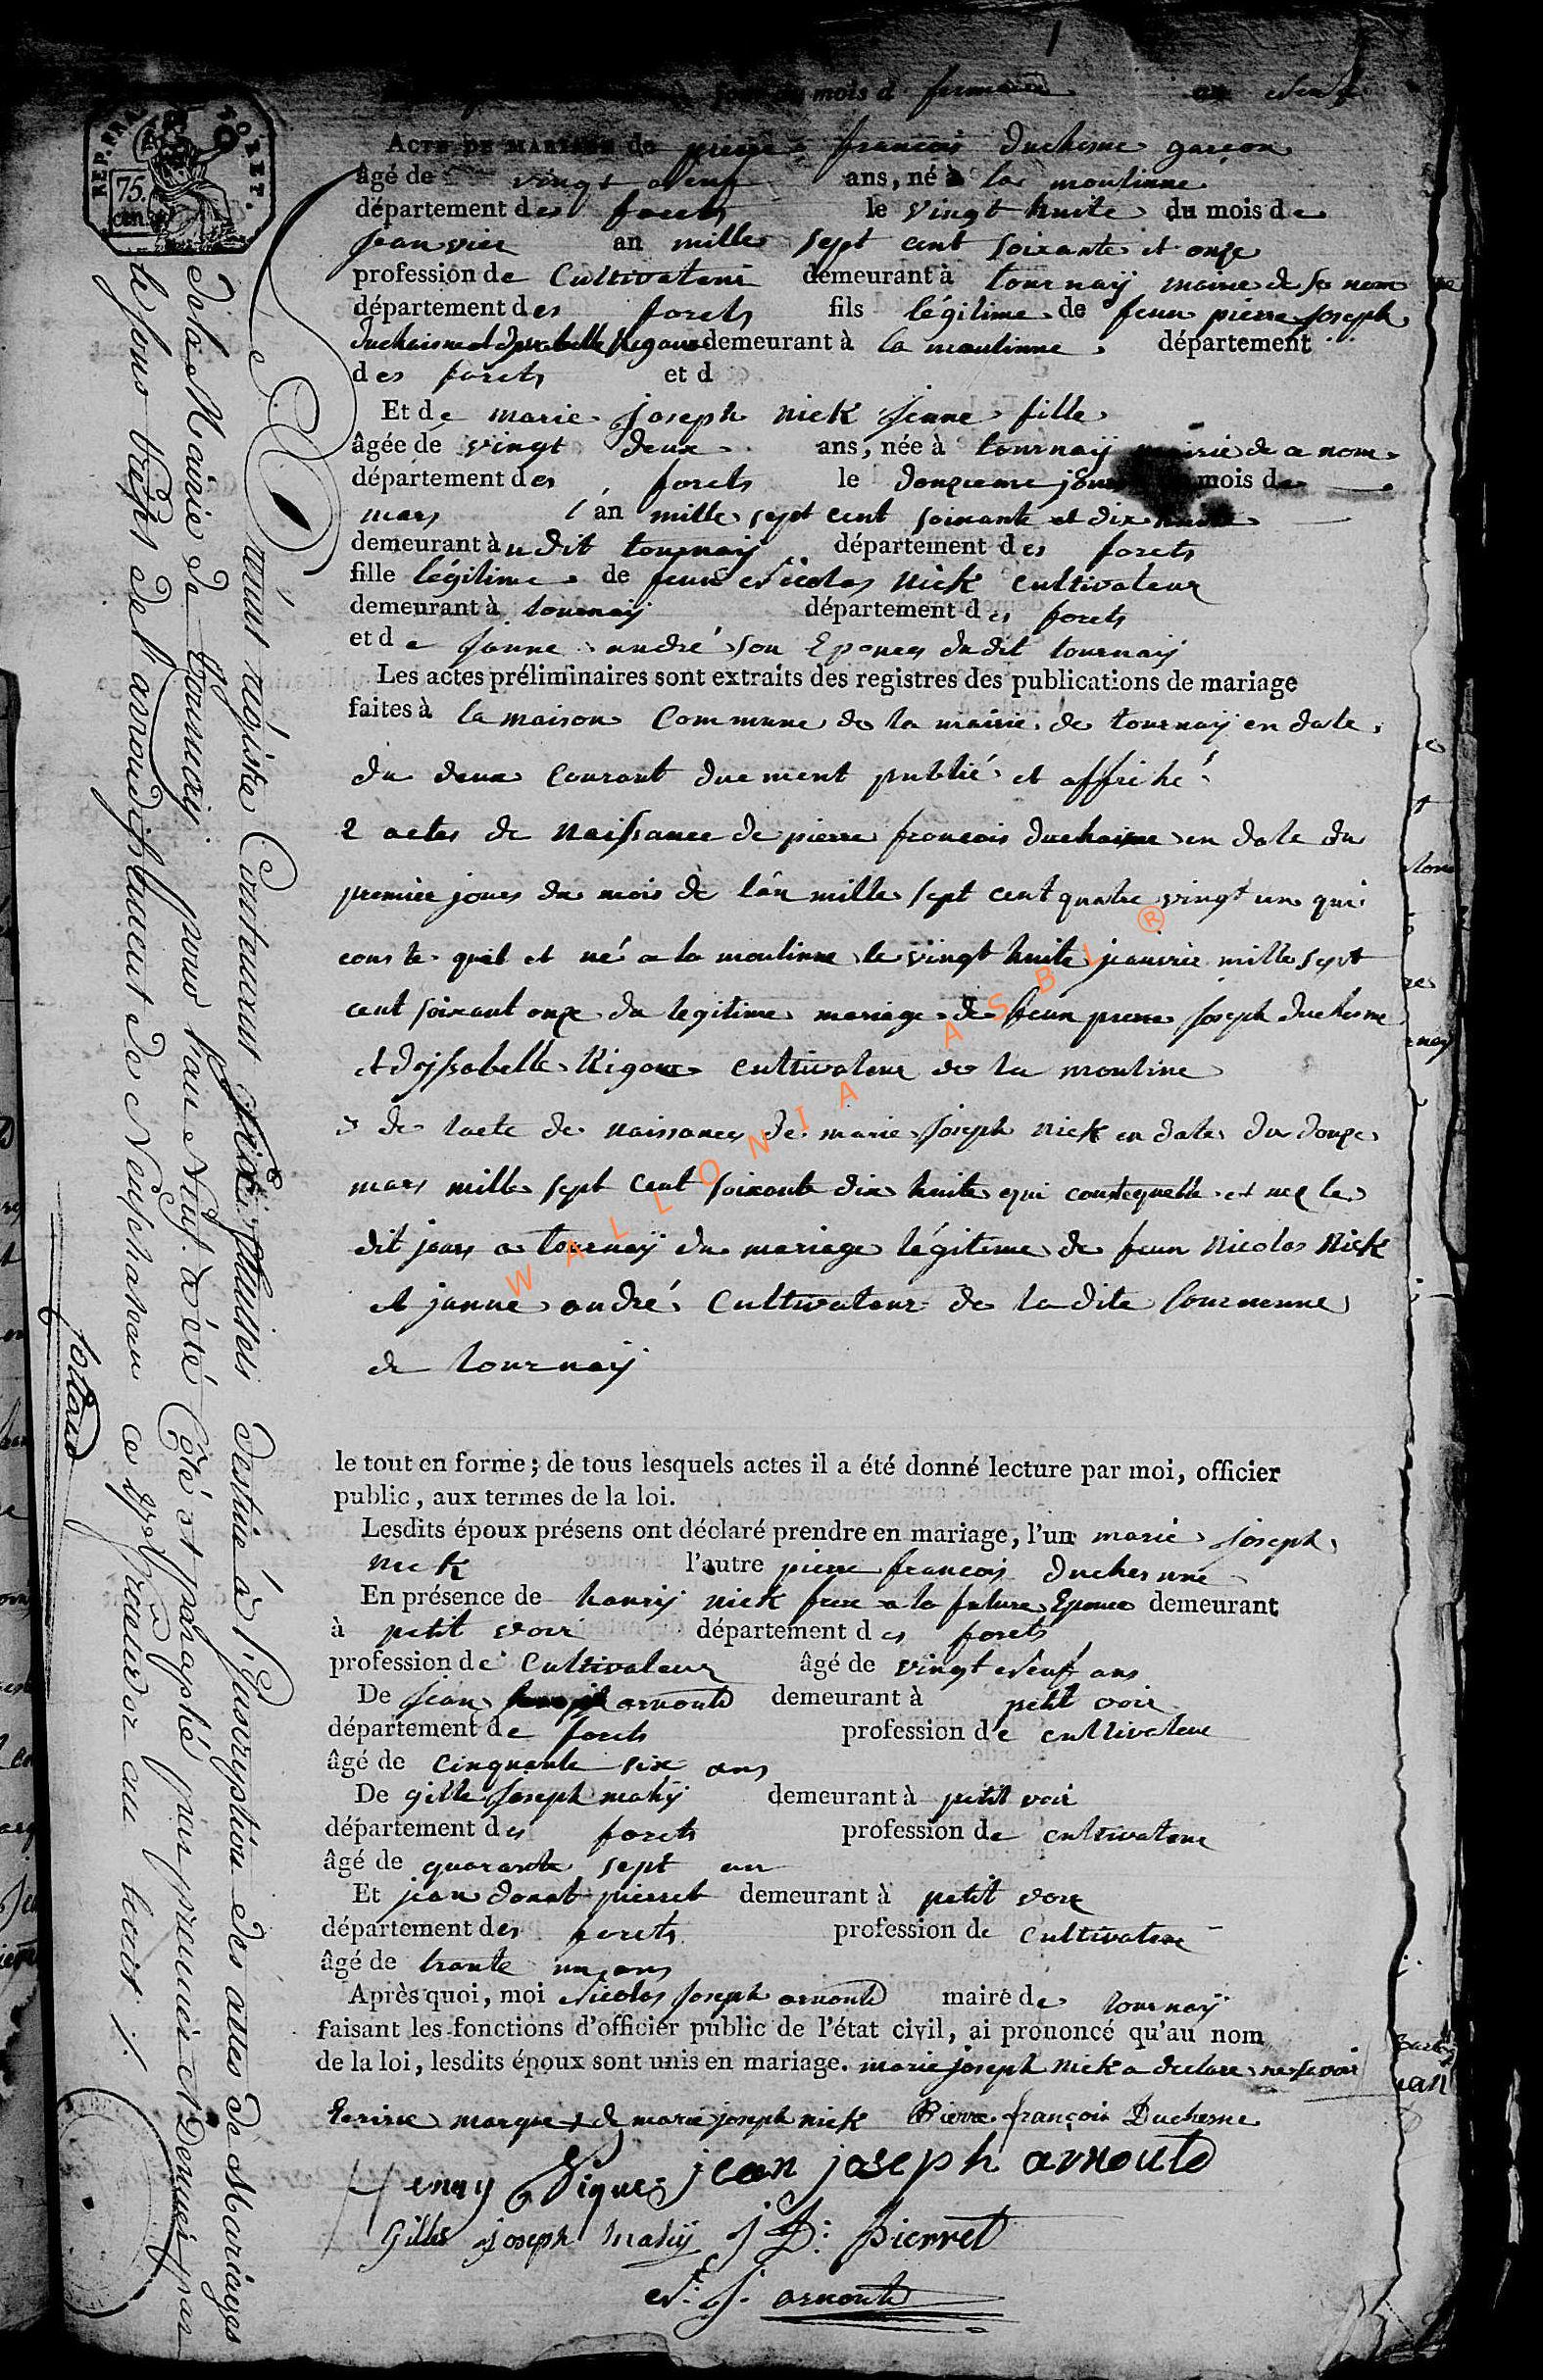 jour du mois d frimaire an neuf
ACTE DE MARIAGE de pierre francois Duchesne garcon
âgé de vingt neuf ans, né à la moulinne
département des forets le vingt huite du mois de
jeanvier an mille sept cent soixante et onze
profession de Cultivateur demeurant à tournaÿ mairie de se nom
département des forets fils légitime de feun pierre Joseph
duchaisne et dysabelle Rigaux demeurant à la moulinne département
des forets et d
Et de marie joseph nick jeune fille
âgée de vingt deux ans, née à tournaÿ mairie de ce nom
département des forets le douzieme jour mois de
mars l'an mille sept cent soixante et dix huite
demeurant à u dit tournaÿ département des forets
fille légitime de feun Nicolas nick cultivateur
demeurant à tournaÿ département des forets
et de janne andré son Epouces dudit tournaÿ
Les actes préliminaires sont extraits des registres des publications de mariage
faites à la maison Commune de la mairie de tournaÿ en date
du deux Courant duement publié et affiché
2 actes de Naissance de pierre francois duchaisne en date du
premier jours du mois de l'an mille sept cent quatre vingt un qui
conste quil et né a la moulinne le vingt huite janvier mille sept
cent soixant onze du legitime mariage de feun pierre Joseph duchesne
et dyssabelle Rigaux cultivateur de la mouline
3 de lacte de naissances de marie joseph nick en date du douze
mars mille sept cent soixante dix huite qui conste quelle et nee le
dit jours a tournaÿ du mariage légitime de feun Nicolas Nick
et janne andré Cultivateur de la dite
de tournaÿ
le tout en forme ; de tous lesquels actes il a été donné lecture par moi, officier
public, aux termes de la loi.
Lesdits époux présens ont déclaré prendre en mariage, l'un marie joseph
nick l'autre pierre francois duchesne
En présence de hanrij nick frere a la future Epouce demeurant
à petit voir département des forets
profession de Cultivateur âgé de vingt neuf ans
De Jean arnould demeurant à petit voir
département de forets profession de cultivateur
âgé de cinquante six ans
De gille Joseph mahÿ demeurant à petit voir
département des forets profession de cultivateur
âgé de quarante sept an
Et jean donat pierret demeurant à petit voir
département des forets profession de Cultivateur
âgé de trante un ans
Après quoi, moi Nicolas Joseph arnould maire de tournaÿ
faisant les fonctions d'officier public de l'état civil, ai prononcé qu'au nom
de la loi, lesdits époux sont unis en mariage. marie joseph nick a declare ne savoir
Ecrire marque + de marie joseph nick Pierre françois Duchesne
henry Nique jean joseph arnould
Gilles joseph mahÿ J D: Pierret
N: J. arnould
Le présent régistre Contenant feuillets destiné à l'Inscription des actes de Mariages
de la Mairie de tournaÿ pour l'an Neuf. a été Côté et paraphé par premier et Dernier par
le sous Prefet de l'arrondissement de Neufchateau ce
REP. FRA. 75. cen. FORET.
WALLONIA ASBL ®